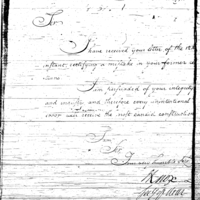 Sir
I have received your letter of the 18th
instant certifying a mistake in your former re
turn
I am persuaded of your integrity
and and therefore any unintentional
error will receive the most candid construction
I am
Sir
Your very humble Ser
Knox
Secy of War